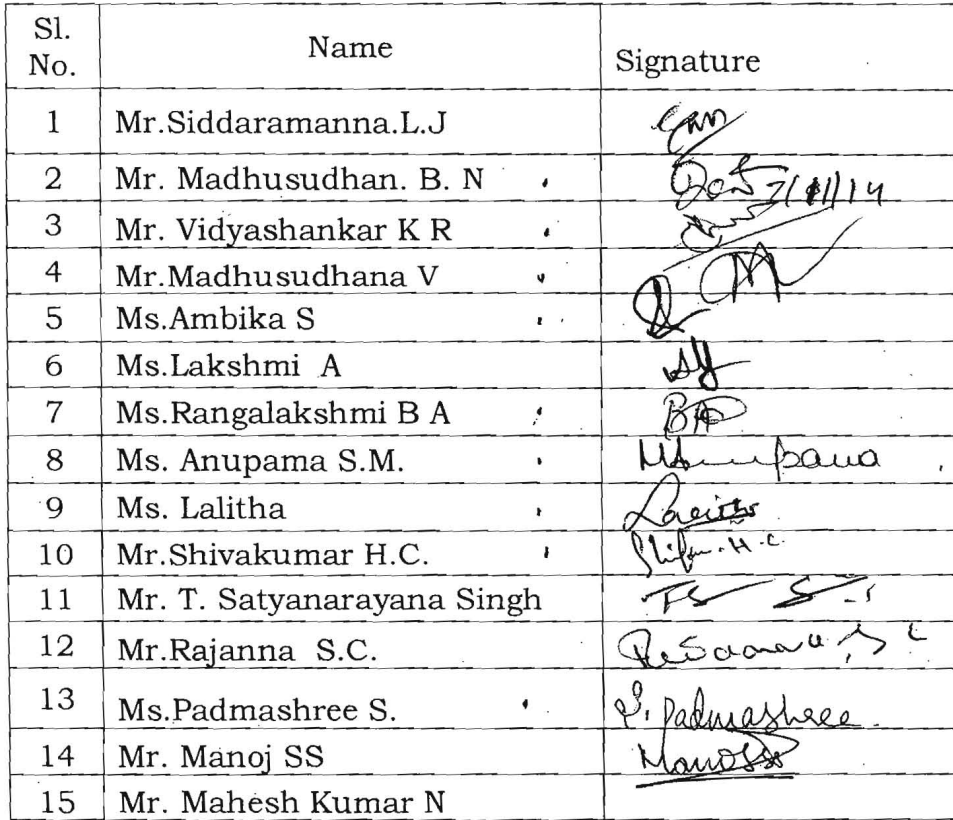 Sl. No. Name Signature
1 Mr.Siddaramanna.L.J
2 Mr. Madhusudhan. B. N
3 Mr. Vidyashankar K R
4 Mr.Madhusudhana V
5 Ms.Ambika S
6 Ms.Lakshmi A
7 Ms.Rangalakshmi B A
8 Ms. Anupama S.M.
9 Ms. Lalitha
10 Mr.Shivakumar H.C. H.C
11 Mr. T. Satyanarayana Singh
12 Mr.Rajanna S.C.
13 Ms.Padmashree S. S. Padmashree
14 Mr. Manoj SS
15 Mr. Mahesh Kumar N